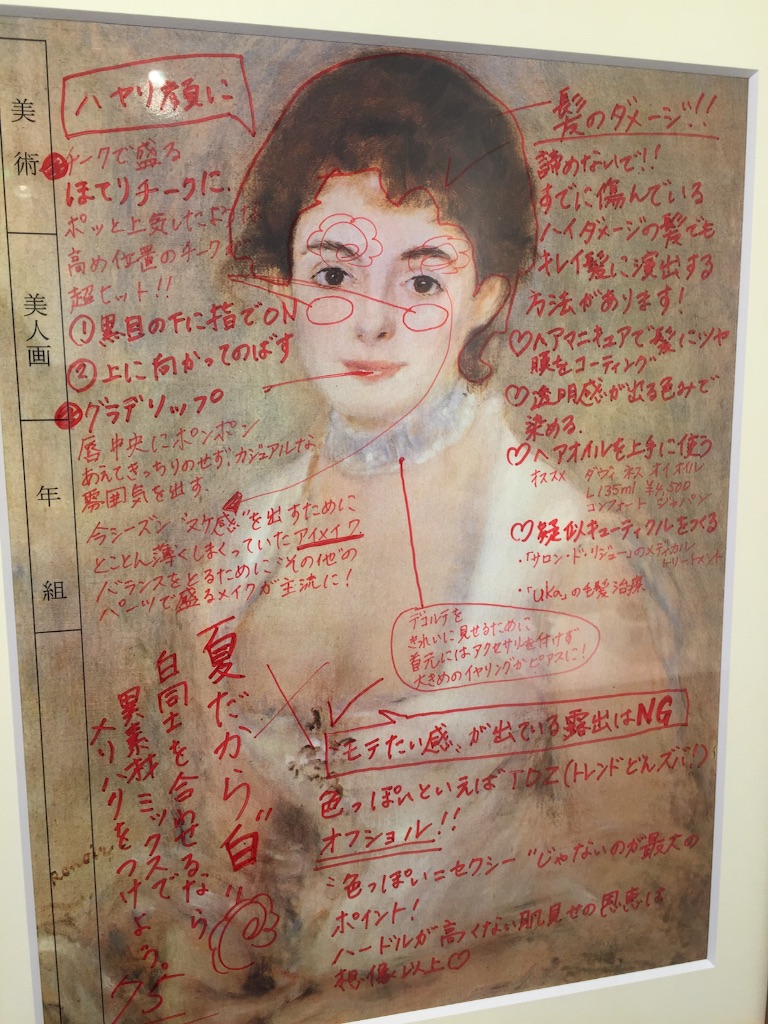 美術
美人画
年
組
ハヤリ顔に
チークで盛る
ほてりチークに.
ポッと上気したような
高め位置のチークが
超ヒット!!
①黒目の下に指でON
②上に向かってのばす
グラデリップ
唇中央にポンポン
あえてきっちりのせず.カジュアルな
雰囲気を出す.
今シーズン“ヌケ感”を出すために
とことん薄くしまくっていたアイメイク
バランスをとるために“その他”の
パーツで盛るメイクが主流に!
髪のダメージ!!
諦めないで!!
すでに傷んでいる
ハイダメージの髪でも
キレイ髪に演出する
方法があります!
♡ヘアマニキュアで髪にツヤ
膜をコーティング
♡透明感が出る色みで
染める.
♡ヘアオイルを上手に使う
オススメ ダヴィネス オイ オイル
L 135ml ¥4,500
コンフォート ジャパン
♡疑似キューティクルをつくる
・「サロン・ド・リジュー」のメディカル
トリートメント
・「uka」の毛髪治療
デコルテを
きれいに見せるために
首元にはアクセサリーを付けず
大きめのイヤリングかピアスに!
“モテたい感”が出ている露出はNG
色っぽいといえばTDZ(トレンドどんズバ!)
オフショル!!
“色っぽい=セクシー”じゃないのが最大の
ポイント!
ハードルが高くない肌見せの恩恵は
想像以上♡
夏だから“白”!!
白同士を合わせるなら
異素材ミックスで
メリハリをつけよう。
75
Renoir